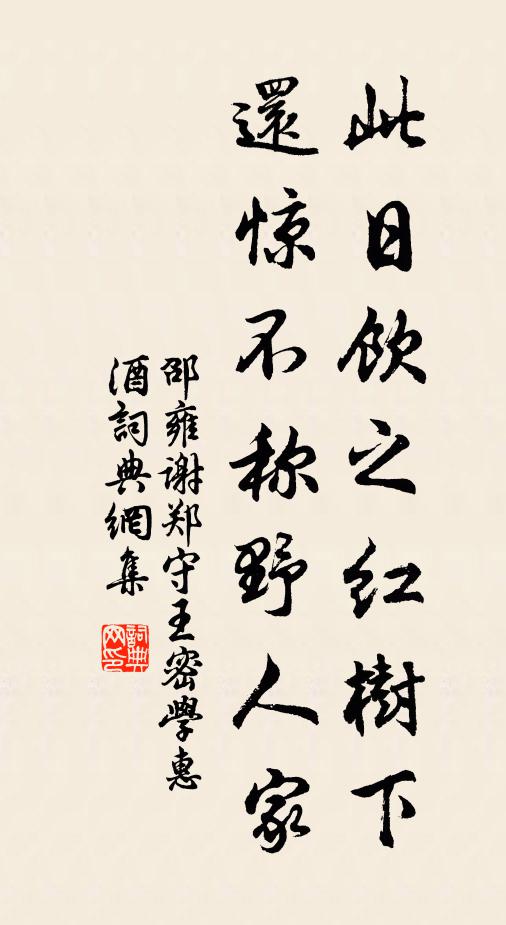 此日飲之紅樹下
還惊不称野人家
邵雍谢郑守王密學惠
酒詞典網集
詞典
网印